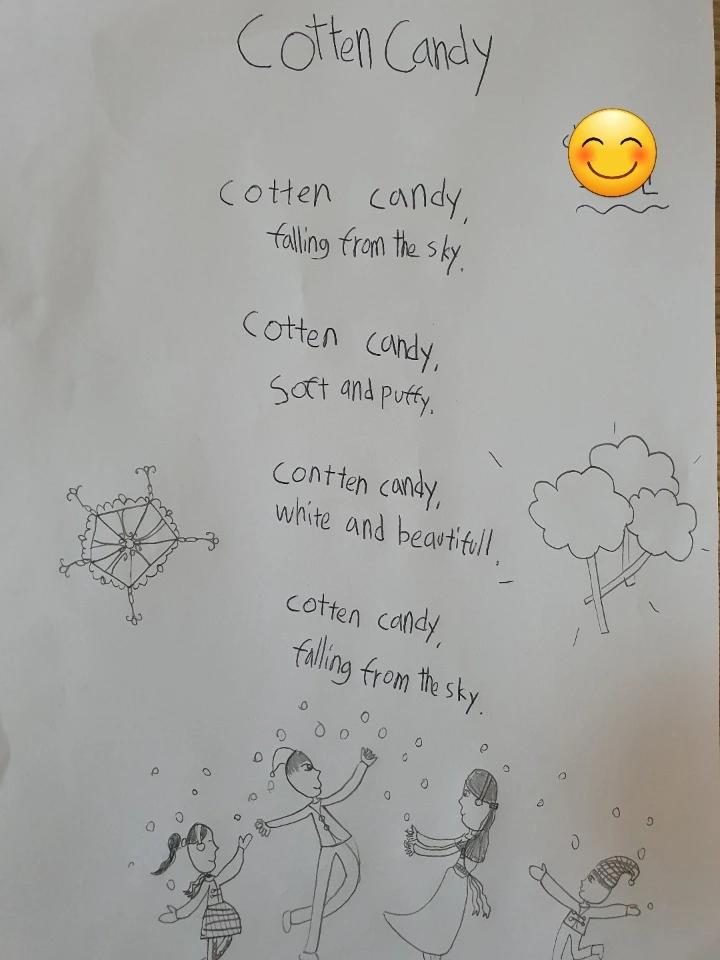 Cotten Candy
cotten candy,
falling from the sky.
Cotten candy,
Soft and puffy.
Contten candy,
white and beautifull.
cotten candy,
falling from the sky.